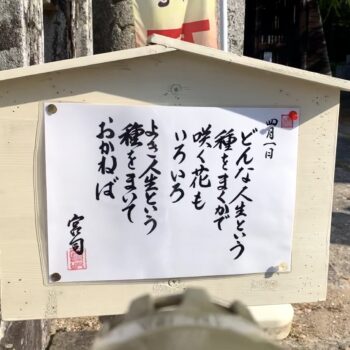 四月一日
どんな人生という
種をまくかで
咲く花も
いろいろ
よき人生という
種をまいて
おかねば
宮司